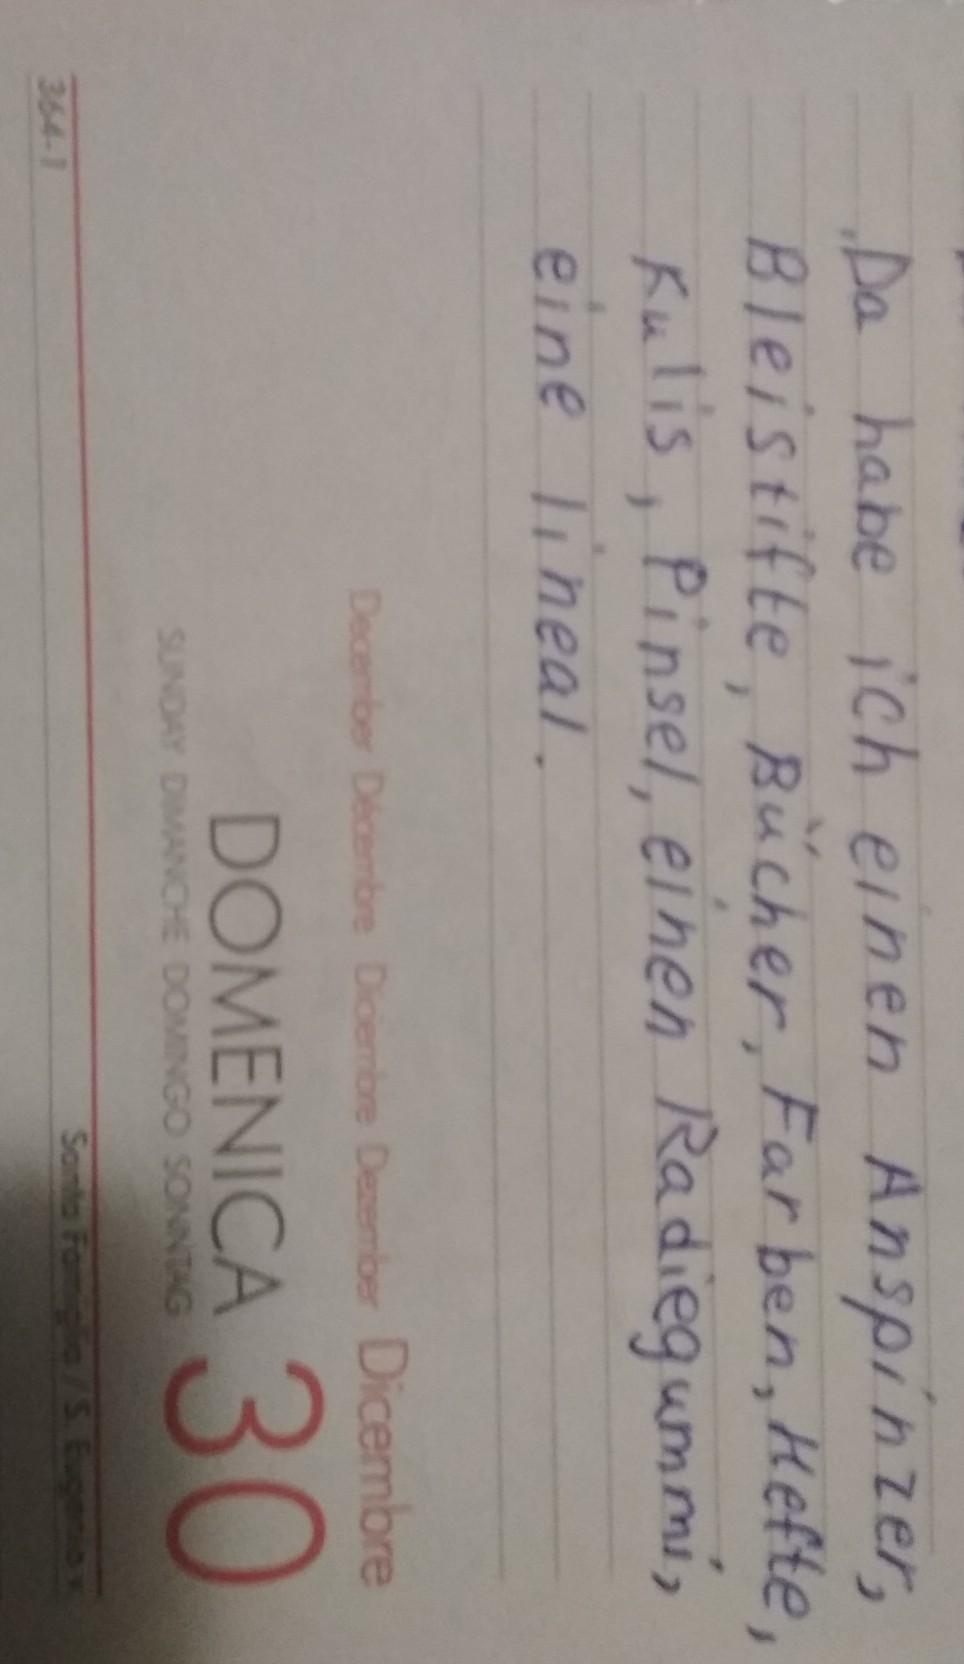 Da habe ich einen Anspinzer,
Bleistifte, Bücher, Farben, Hefte,
Kulis, Pinsel, einen Radiegummi,
eine lineal.
December Décembre Diciembre Dezember Dicembre
DOMENICA 30
SUNDAY DIMANCHE DOMINGO SONNTAG
364-1
Santa Famiglia / S. Eugenio v.